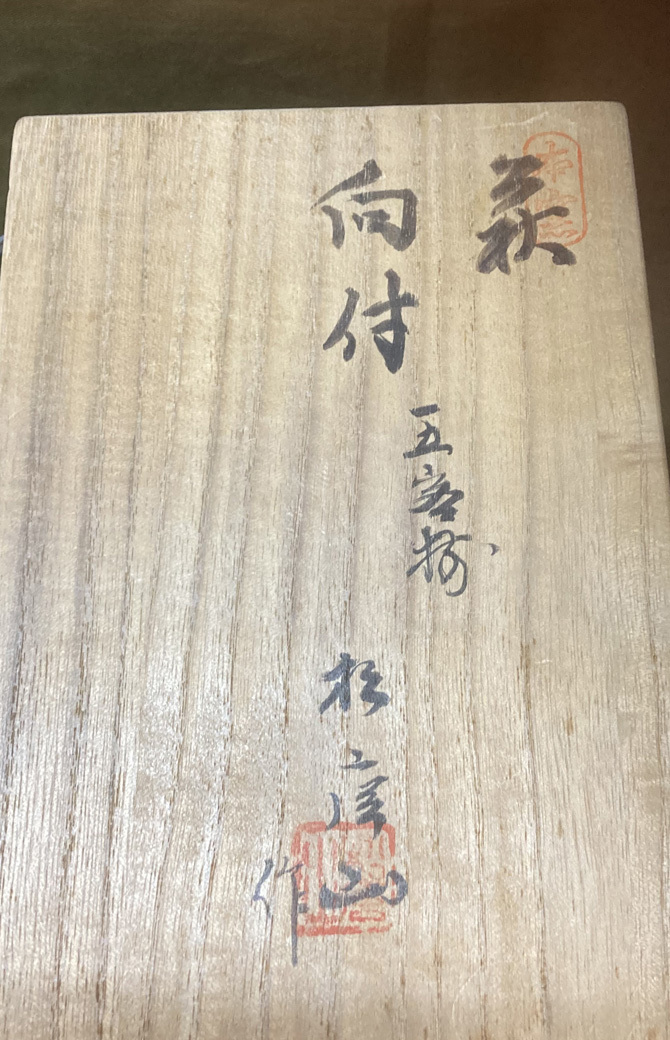 萩
向付
五客揃
松庫山
作